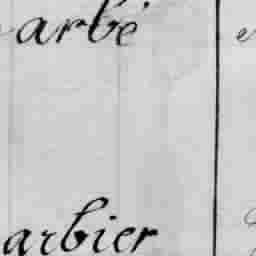 arbé
arbier